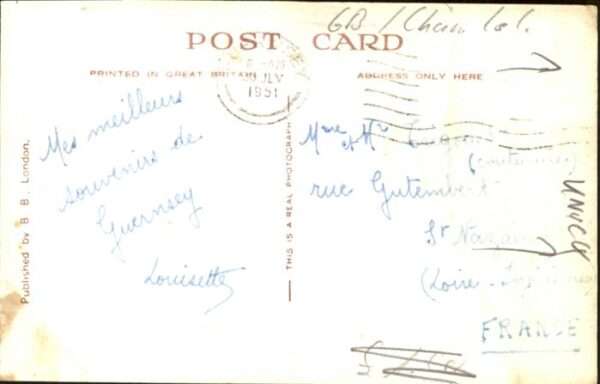 GB / Chan Isl.
POST CARD
PRINTED IN GREAT BRITAIN
ADDRESS ONLY HERE
JLY
1951
Published by B B, London.
Mes meilleurs
souvenirs de
Guernsey
Louisette
THIS IS A REAL PHOTOGRAPH
Mme et Mr
rue Gutemberg
St Nazaire
(Loire - Inférieure)
FRANCE